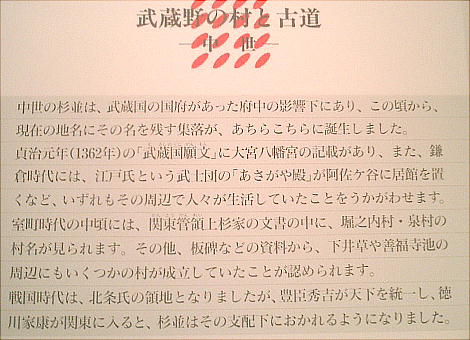 武蔵野の村と古道
―中 世―
中世の杉並は、武蔵国の国府があった府中の影響下にあり、この頃から、
現在の地名にその名を残す集落が、あちらこちらに誕生しました。
貞治元年(1362年)の「武蔵国願文」に大宮八幡宮の記載があり、また、鎌
倉時代には、江戸氏という武士団の「あさがや殿」が阿佐ケ谷に居館を置
くなど、いずれもその周辺で人々が生活していたことをうかがわせます。
室町時代の中頃には、関東管領上杉家の文書の中に、堀之内村・泉村の
村名が見られます。その他、板碑などの資料から、下井草や善福寺池の
周辺にもいくつかの村が成立していたことが認められます。
戦国時代は、北条氏の領地となりましたが、豊臣秀吉が天下を統一し、徳
川家康が関東に入ると、杉並はその支配下におかれるようになりました。